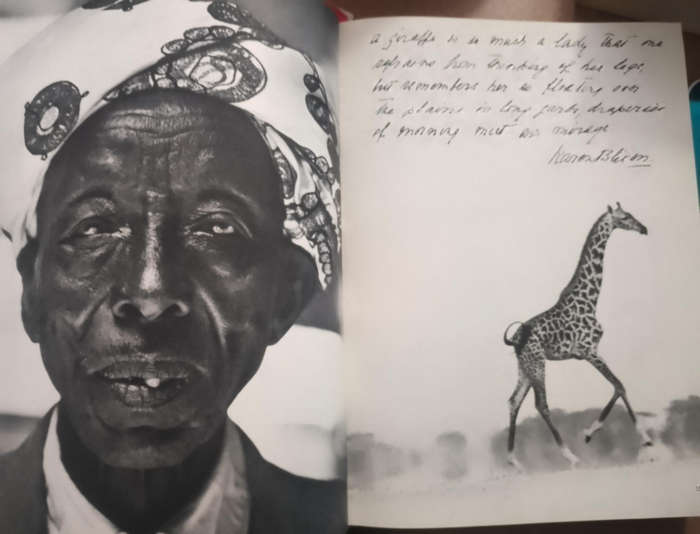 a giraffe is so much a lady that one
refrains from thinking of her legs,
but remembers her as floating over
the plains in long garbs, draperies
of morning mist or mirage
Karen Blixen